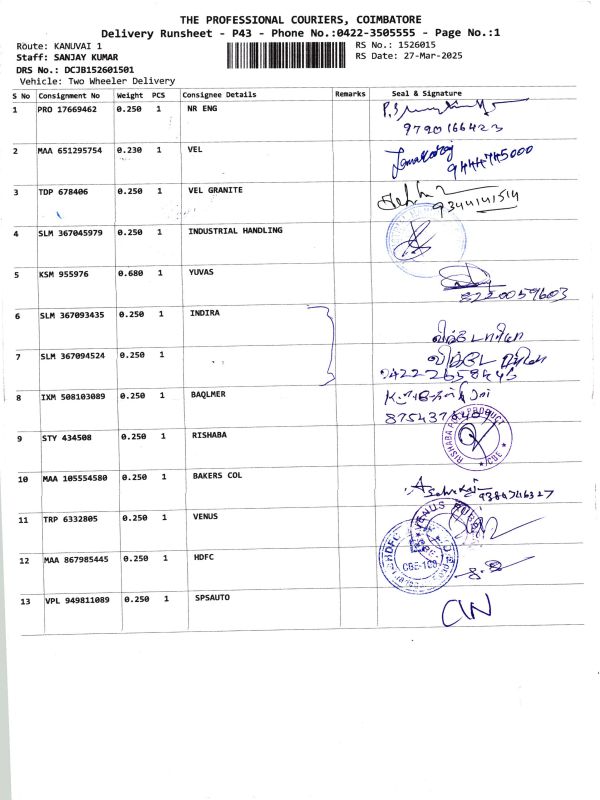 THE PROFESSIONAL COURIERS, COIMBATORE
Delivery Runsheet - P43 - Phone No.:0422-3505555 - Page No.:1
Route: KANUVAI 1
RS No.: 1526015
Staff: SANJAY KUMAR
RS Date: 27-Mar-2025
DRS No.: DCJB152601501
Vehicle: Two Wheeler Delivery
S No Consignment No Weight PCS Consignee Details Remarks Seal & Signature
1 PRO 17669462 0.250 1 NR ENG
9790166423
2 MAA 651295754 0.230 1 VEL
9444745000
3 TDP 678406 0.250 1 VEL GRANITE
9344141514
4 SLM 367045979 0.250 1 INDUSTRIAL HANDLING
5 KSM 955976 0.680 1 YUVAS
8220059603
6 SLM 367093435 0.250 1 INDIRA
7 SLM 367094524 0.250 1
0422 2658445
8 IXM 508103089 0.250 1 BAQLMER
9 STY 434508 0.250 1 RISHABA
RISHABA PRODUCT CBE
10 MAA 105554580 0.250 1 BAKERS COL
11 TRP 6332805 0.250 1 VENUS
VENUS
12 MAA 867985445 0.250 1 HDFC
HDFC
13 VPL 949811089 0.250 1 SPSAUTO